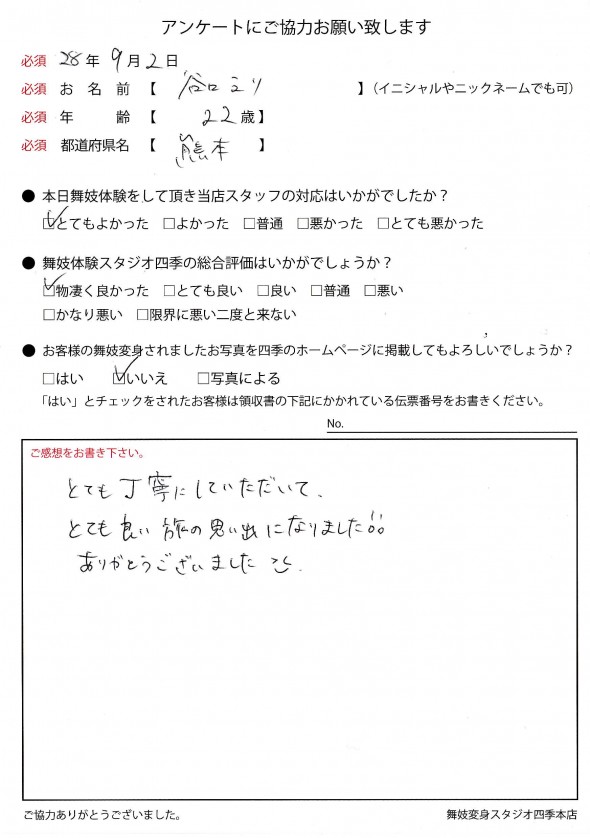 アンケートにご協力お願い致します
必須 28年 9月 2日
必須 お名前 【 谷口えり 】（イニシャルやニックネームでも可）
必須 年齢 【 22歳】
必須 都道府県名 【 熊本 】
● 本日舞妓体験をして頂き当店スタッフの対応はいかがでしたか？
☑とてもよかった □よかった □普通 □悪かった □とても悪かった
● 舞妓体験スタジオ四季の総合評価はいかがでしょうか？
☑物凄く良かった □とても良い □良い □普通 □悪い
□かなり悪い □限界に悪い二度と来ない
● お客様の舞妓変身されましたお写真を四季のホームページに掲載してもよろしいでしょうか？
□はい ☑いいえ □写真による
「はい」とチェックをされたお客様は領収書の下記にかかれている伝票番号をお書きください。
No.
ご感想をお書き下さい。
とても丁寧にしていただいて、
とても良い旅の思い出になりました!!
ありがとうございました
ご協力ありがとうございました。
舞妓変身スタジオ四季本店